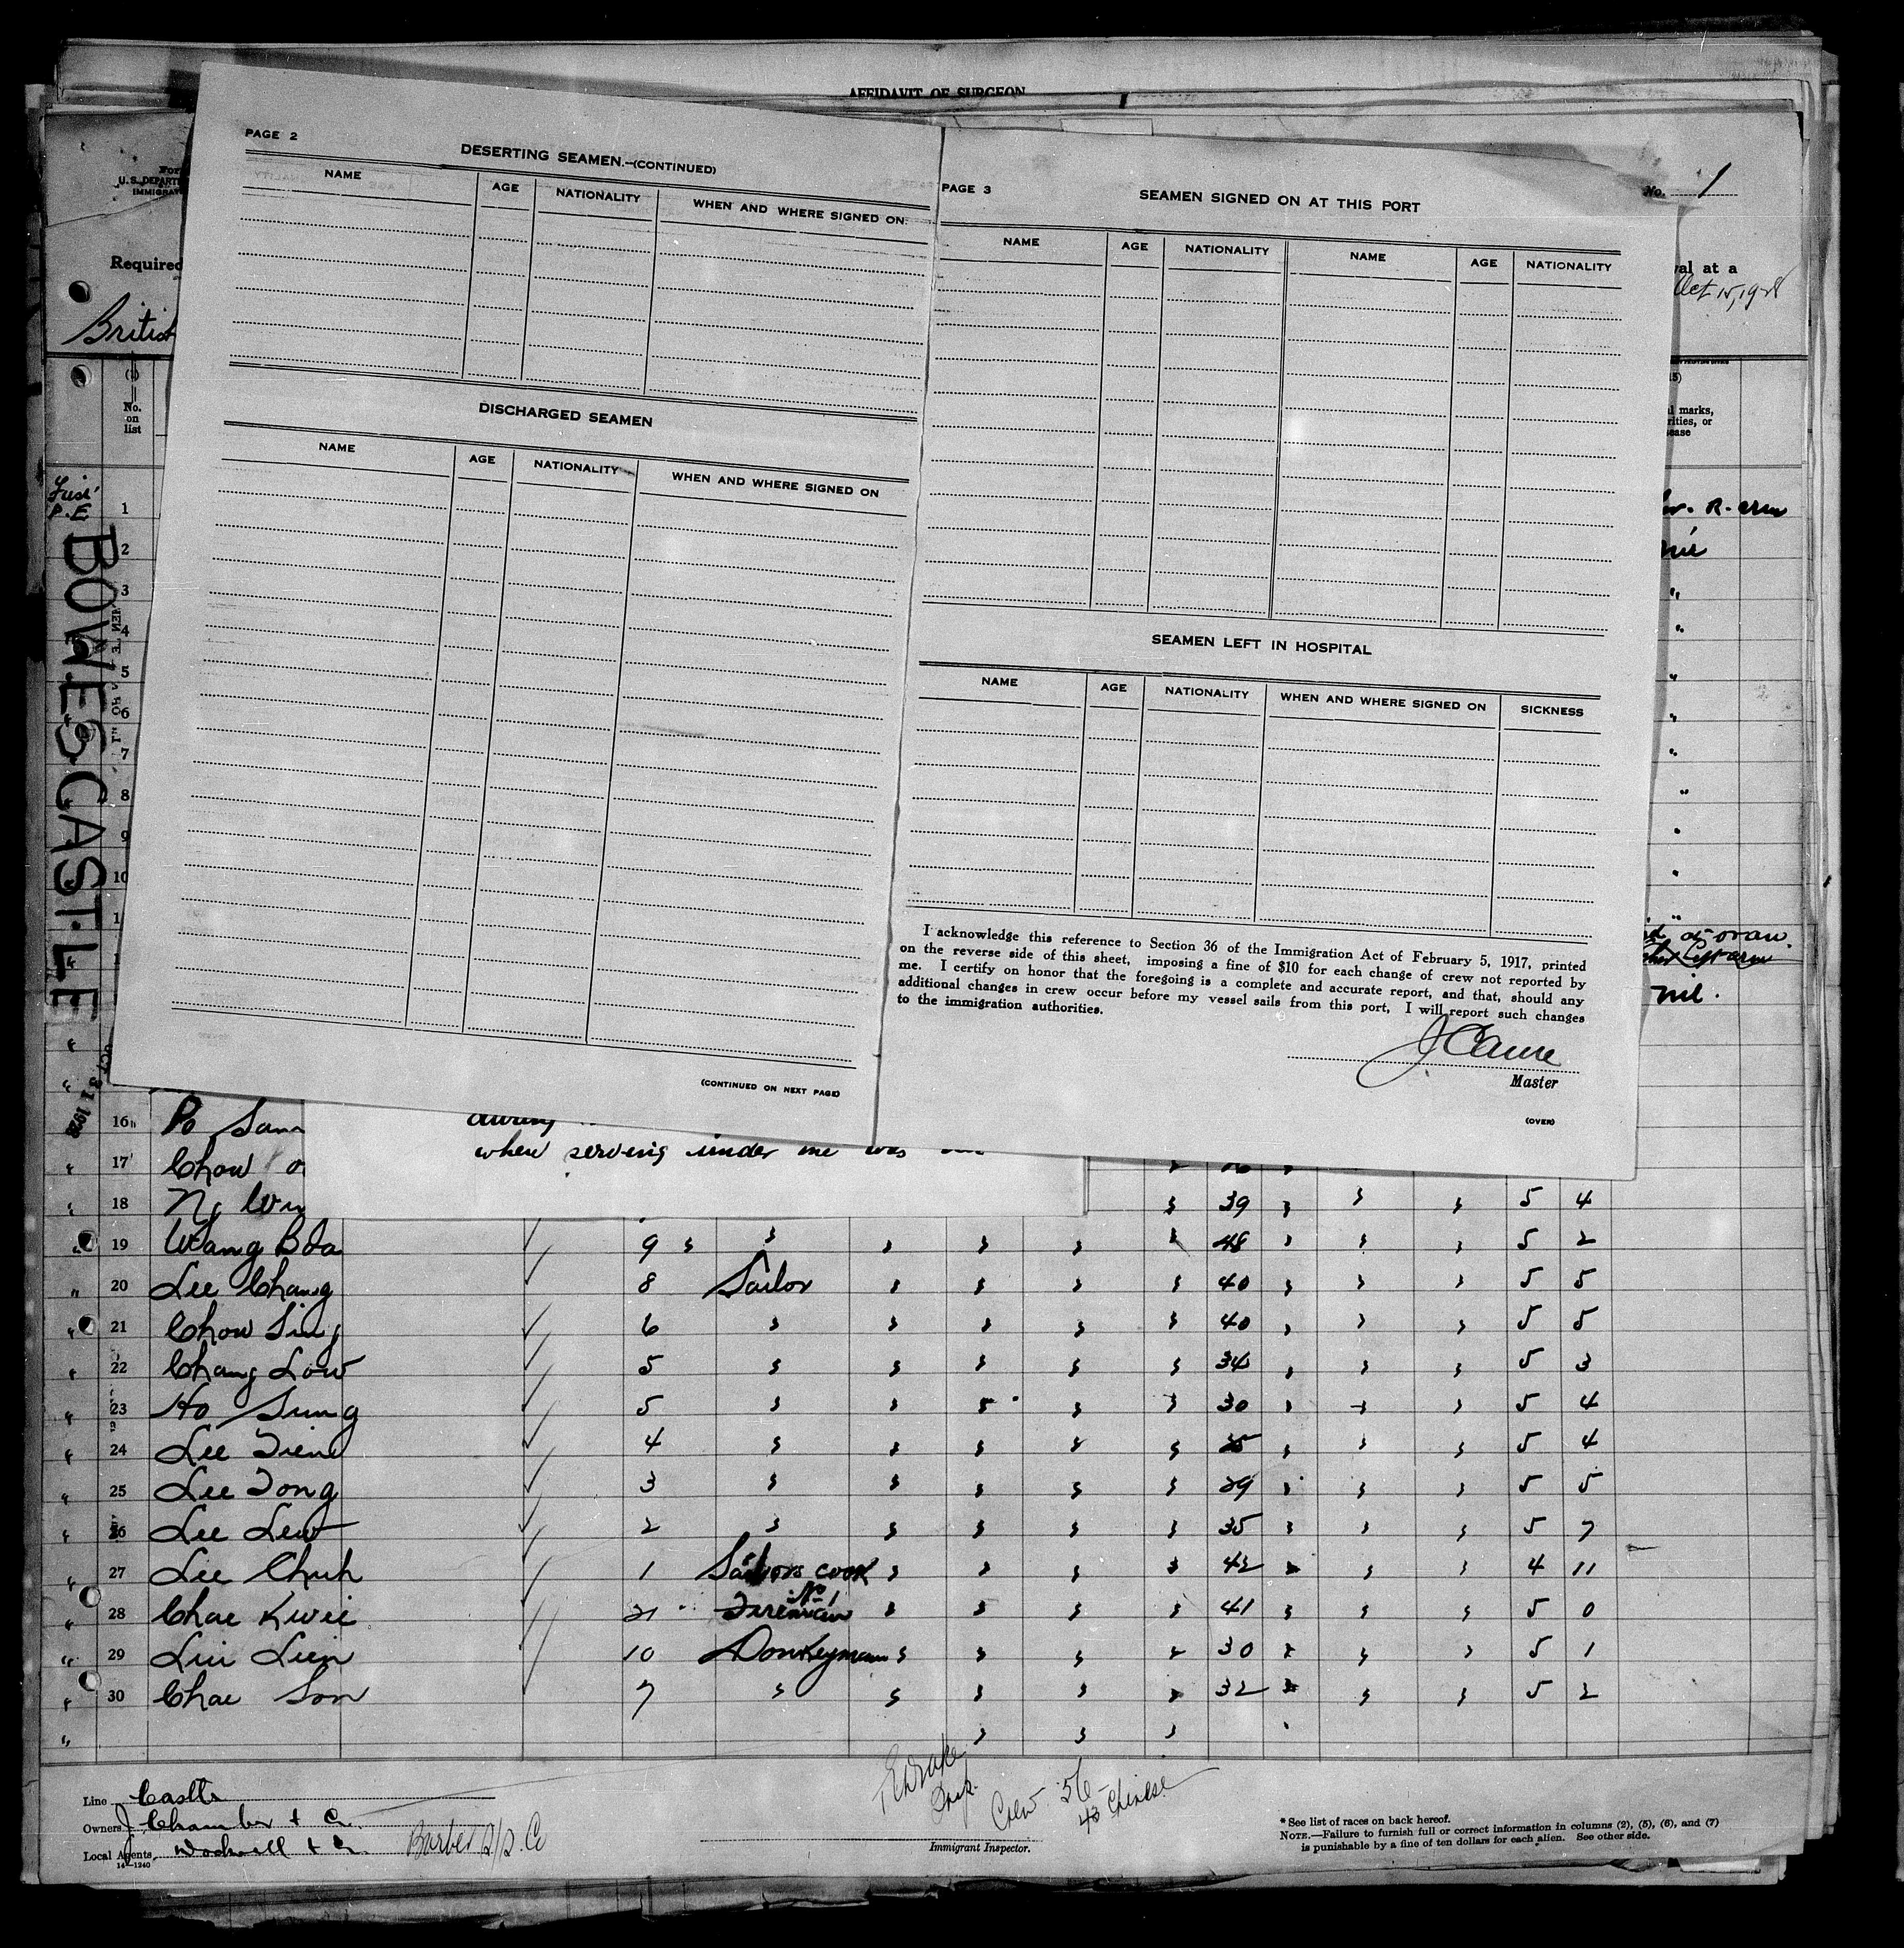 AFFIDAVIT OF SURGEON
PAGE 2
DESERTING SEAMEN.—(CONTINUED)
NAME AGE NATIONALITY WHEN AND WHERE SIGNED ON
DISCHARGED SEAMEN
NAME AGE NATIONALITY WHEN AND WHERE SIGNED ON
(CONTINUED ON NEXT PAGE)
PAGE 3
SEAMEN SIGNED ON AT THIS PORT
NAME AGE NATIONALITY NAME AGE NATIONALITY
SEAMEN LEFT IN HOSPITAL
NAME AGE NATIONALITY WHEN AND WHERE SIGNED ON SICKNESS
I acknowledge this reference to Section 36 of the Immigration Act of February 5, 1917, printed
on the reverse side of this sheet, imposing a fine of $10 for each change of crew not reported by
me. I certify on honor that the foregoing is a complete and accurate report, and that, should any
additional changes in crew occur before my vessel sails from this port, I will report such changes
to the immigration authorities.
Master
(OVER)
No. 1
U. S. DEPART
IMMIGRAT
Required
val at a
Oct 15, 1928
British
No.
on
list
marks,
rities, or
ease
P. E
BOWES CASTLE
OCT 31 1928
1 R. arm
2
3
4
5
6
7
8
9
10
Left arm
nil.
when serving under me was
16 Po Sam
17 Chow
18 Ng 39 5 4
19 Wang Boa 9 48 5 2
20 Lee Chang 8 Sailor 40 5 5
21 Chow Sing 6 40 5 5
22 Chang Low 5 34 5 3
23 Ho Sung 5 30 5 4
24 Lee Tien 4 35 5 4
25 Lee Tong 3 29 5 5
26 Lee Lew 2 35 5 7
27 Lee Chuh 1 Sailors cook 42 4 11
28 Chae Kwei 21 No 1 Fireman 41 5 0
29 Lui Lien 10 Donkeyman 30 5 1
30 Chae Son 7 32 5 2
Line Castle
Owners J Chamber & Co.
Local Agents
Barber S/S. Co
14—1240
Insp.
Crew 56
43 Chinese
Immigrant Inspector.
* See list of races on back hereof.
NOTE.—Failure to furnish full or correct information in columns (2), (5), (6), and (7)
is punishable by a fine of ten dollars for each alien. See other side.